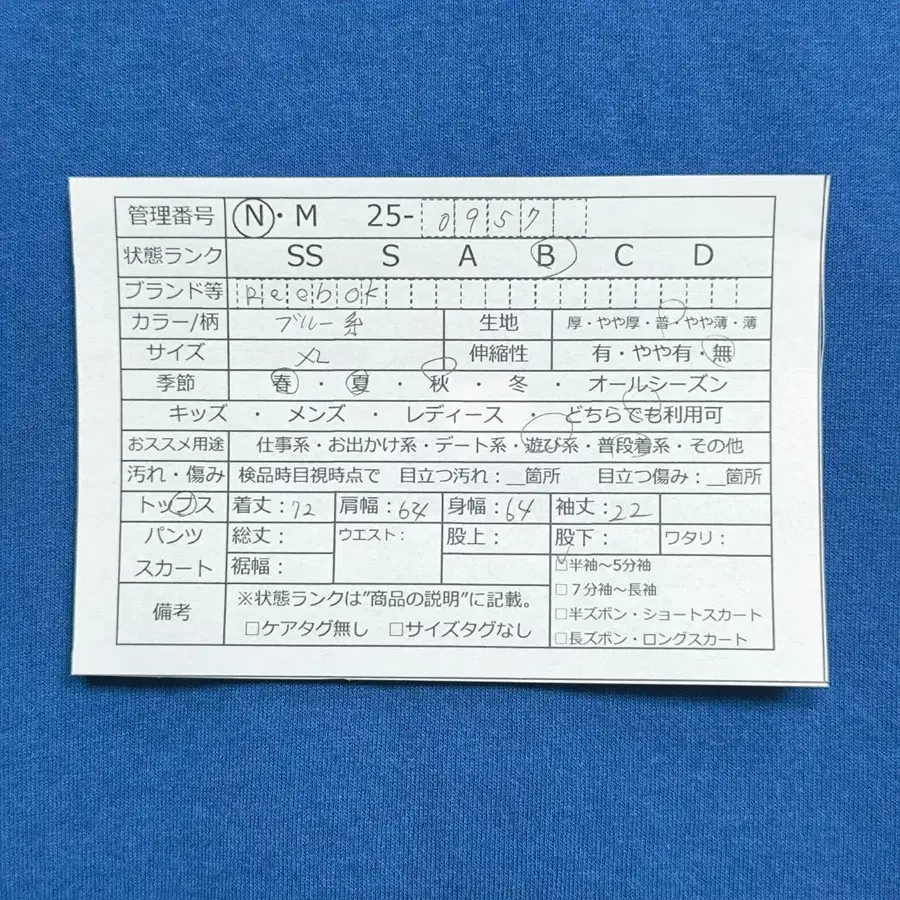 管理番号 N・M 25-0957
状態ランク SS S A B C D
ブランド等 Reebok
カラー/柄 ブルー系 生地 厚・やや厚・普・やや薄・薄
サイズ XL 伸縮性 有・やや有・無
季節 春・夏・秋・冬・オールシーズン
キッズ・メンズ・レディース・どちらでも利用可
おススメ用途 仕事系・お出かけ系・デート系・遊び系・普段着系・その他
汚れ・傷み 検品時目視時点で 目立つ汚れ:__箇所 目立つ傷み:__箇所
トップス 着丈:72 肩幅:64 身幅:64 袖丈:22
パンツ 総丈: ウエスト: 股上: 股下: ワタリ:
スカート 裾幅: ☑半袖～5分袖
□7分袖～長袖
備考 ※状態ランクは"商品の説明"に記載。
□半ズボン・ショートスカート
□ケアタグ無し □サイズタグなし
□長ズボン・ロングスカート